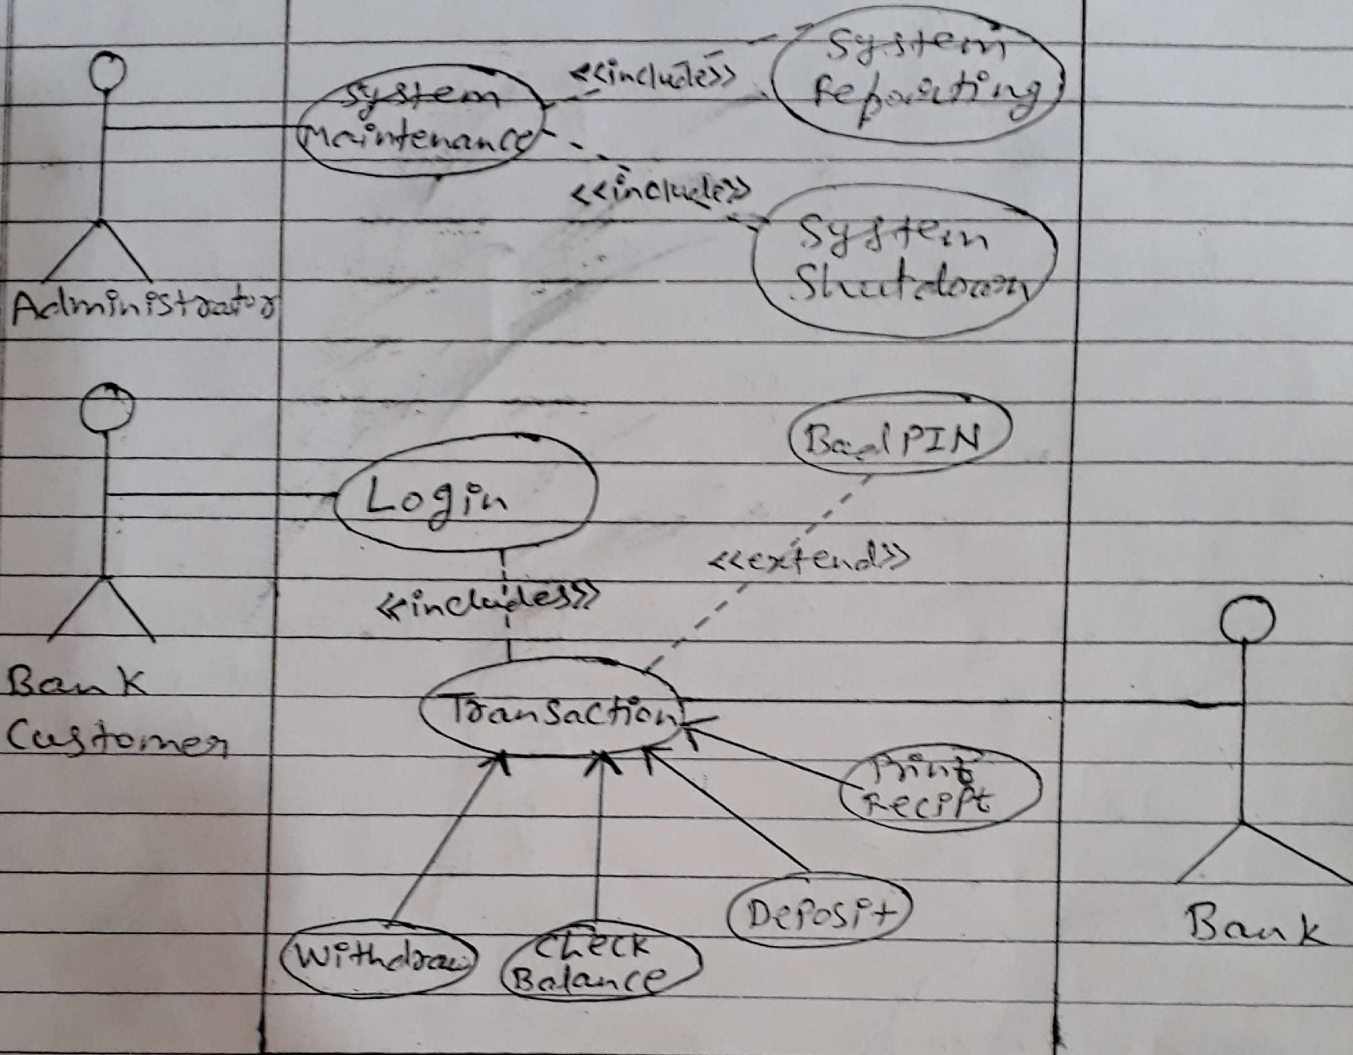 System
Reporting
<<includes>>
System
Maintenance
<<includes>>
System
Shutdown
Administrator
Bad PIN
Login
<<extend>>
<<includes>>
Bank
Customer
Transaction
Print
Recipt
Deposit
Bank
Withdraw
Check
Balance